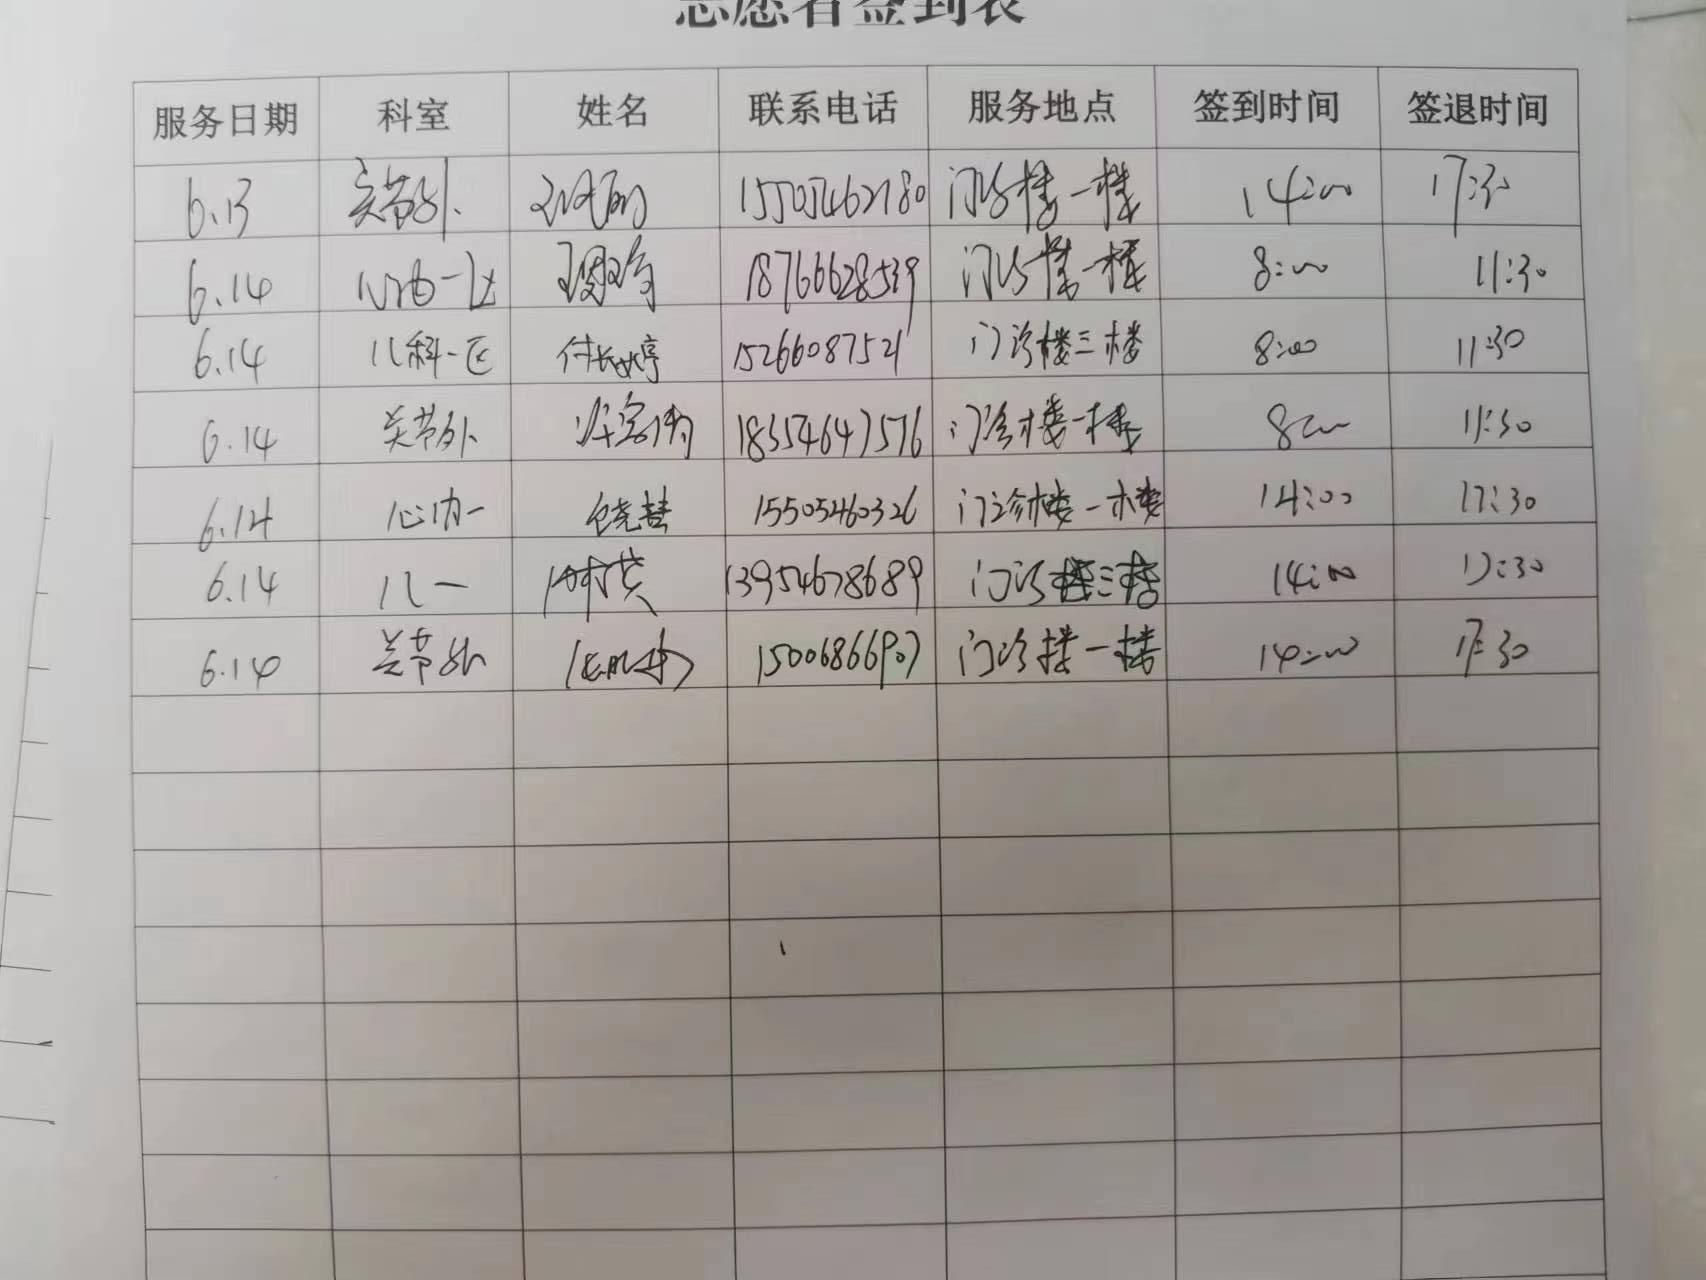 志愿者签到表
服务日期 科室 姓名 联系电话 服务地点 签到时间 签退时间
6.13 关节外 15505462180 门诊楼一楼 14:00 17:30
6.14 心内一区 18766628539 门诊楼一楼 8:00 11:30
6.14 儿科一区 付长婷 15266087521 门诊楼三楼 8:00 11:30
6.14 关节外 18354647576 门诊楼一楼 8:00 11:30
6.14 心内一 15505460326 门诊楼一楼 14:00 17:30
6.14 儿一 13954678689 门诊楼三楼 14:00 17:30
6.14 关节外 15006866907 门诊楼一楼 14:00 17:30